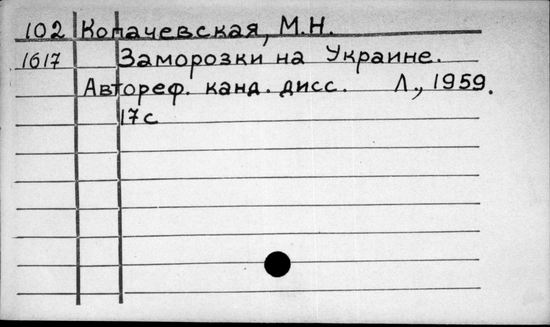 102 Копачевская, М.Н.
1617 Заморозки на Украине.
Автореф. канд. дисс. Л., 1959.
17с